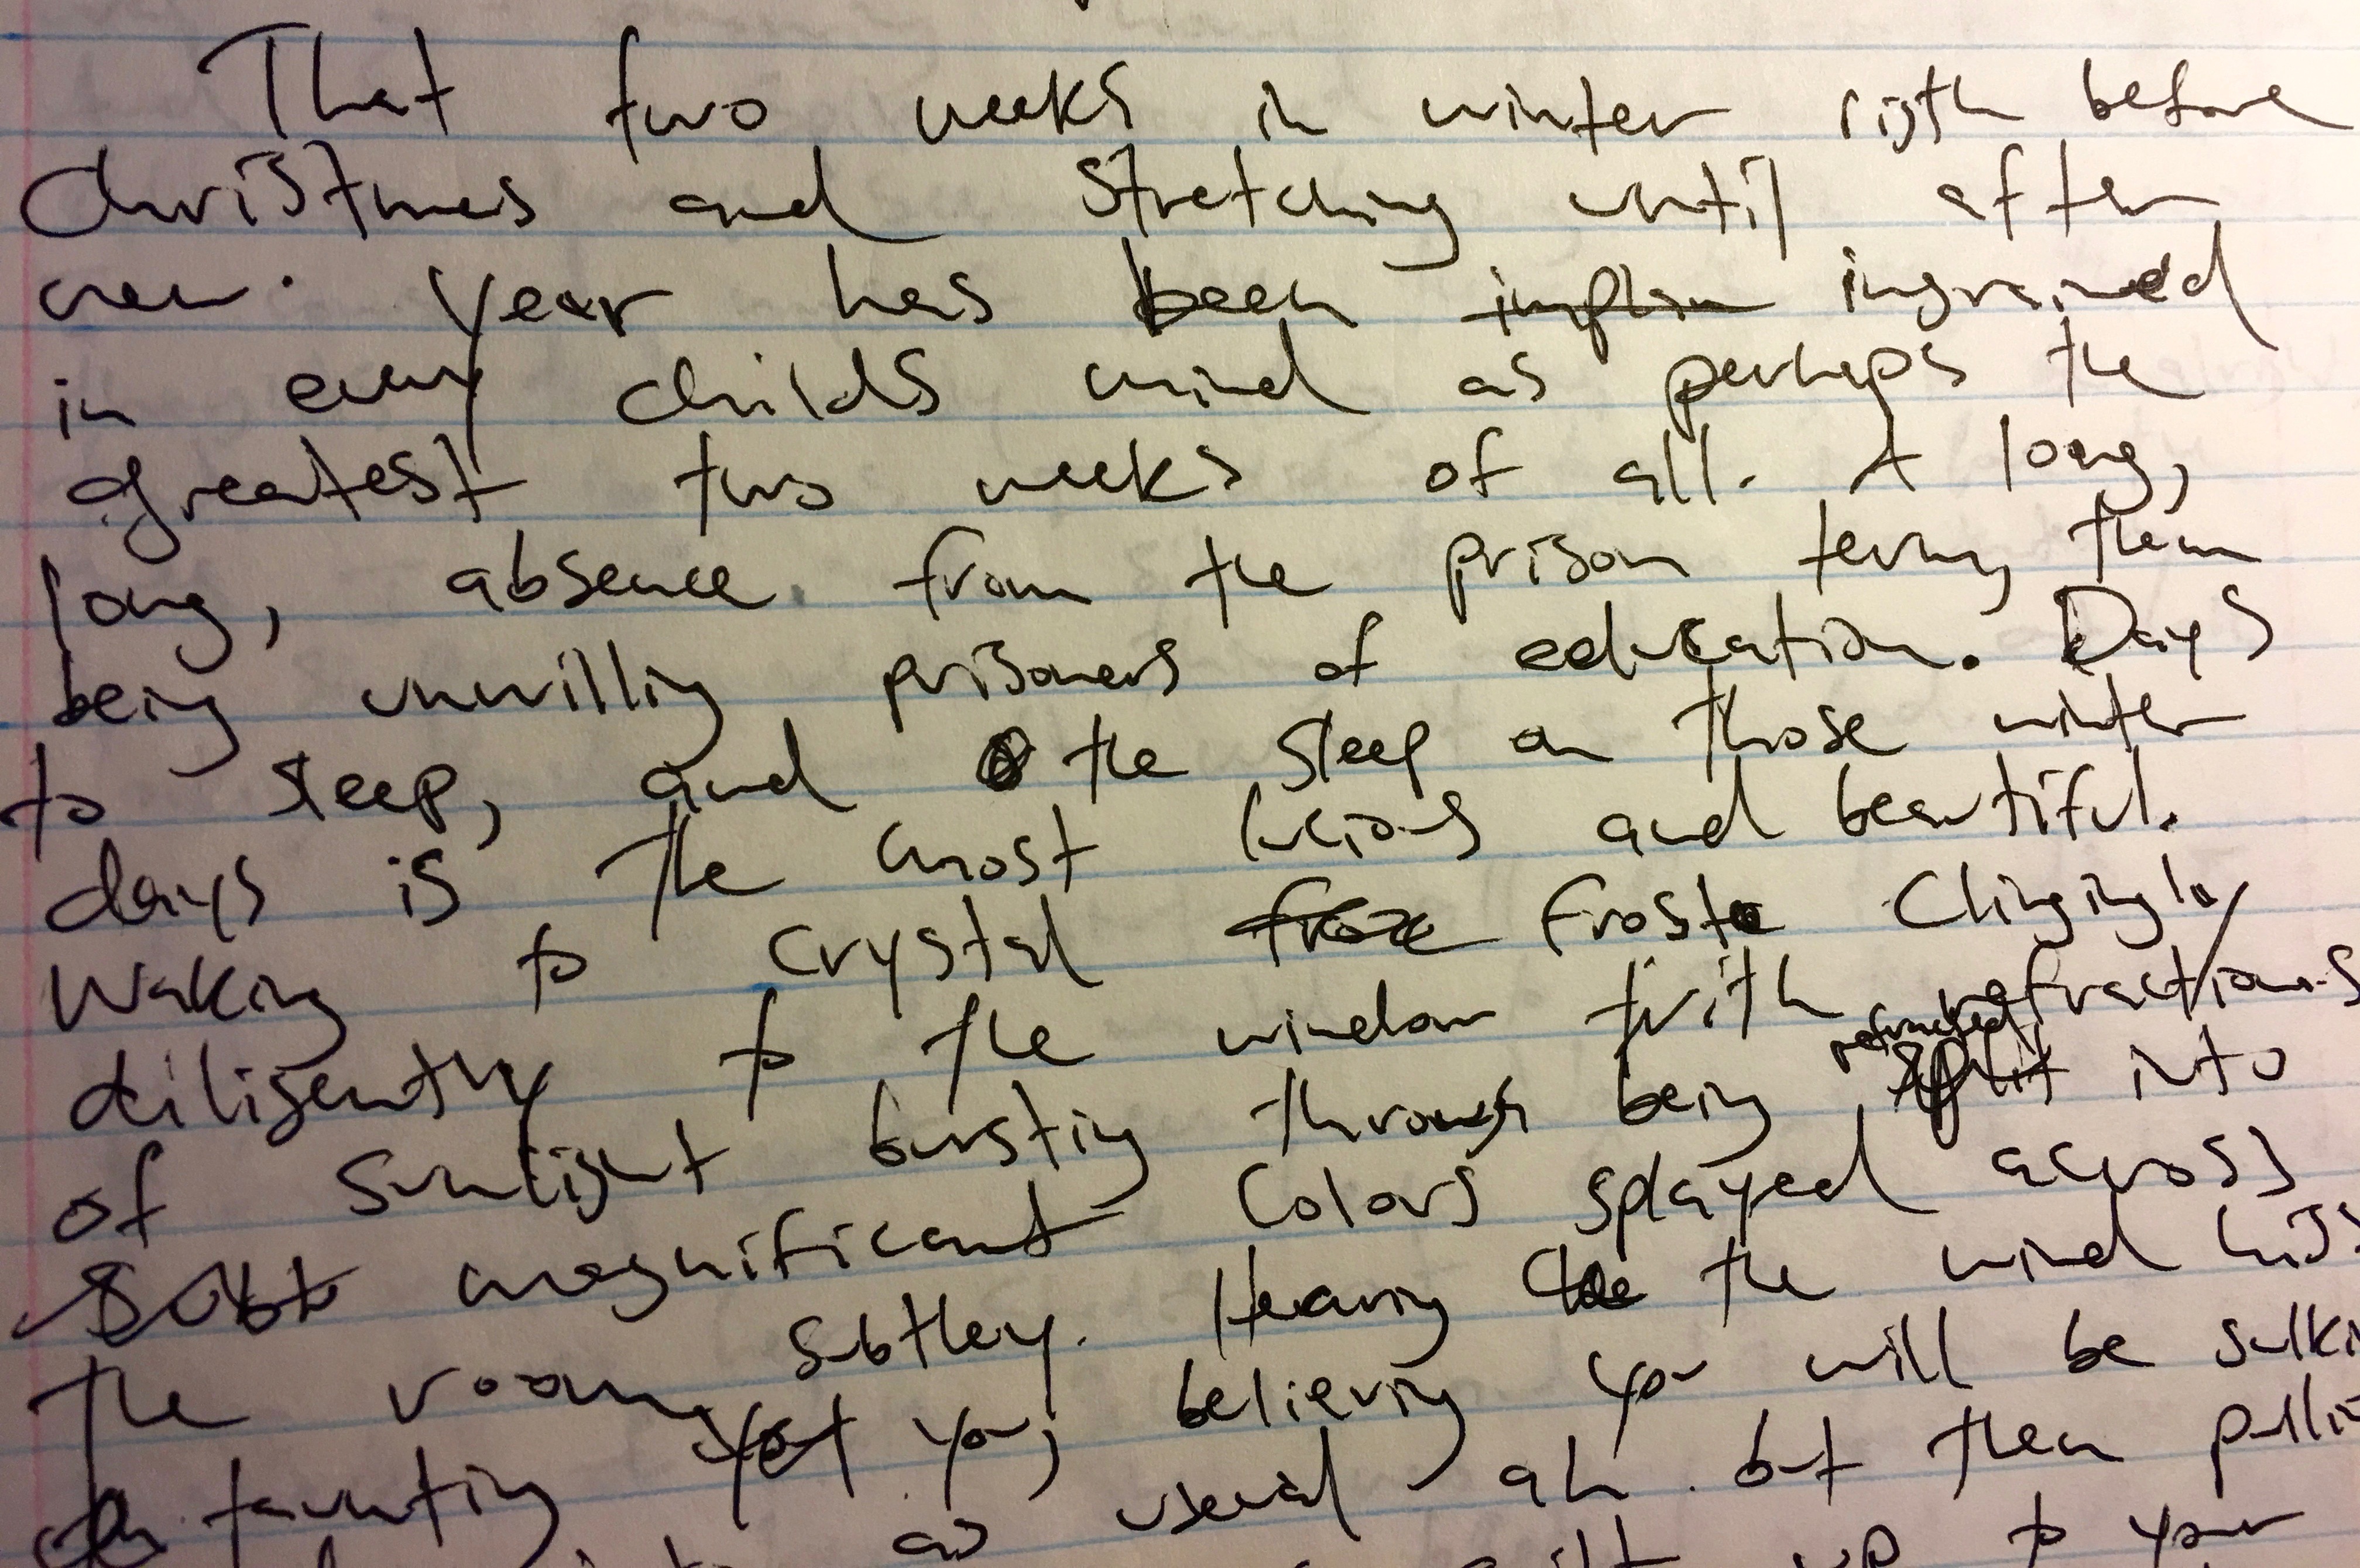 That two weeks in winter rigth before
Christmas and stretching until after
new year has been implan ingrained
in every childs mind as perhaps the
greatest two weeks of all. A long,
long, absence from the prison term, them
being unwilling prisoners of education. Days
to sleep, and the sleep on those winter
days is the most lucious and beautiful.
Waking to crystal froze frost clingingly
diligently to the window with refractions
of sunlight bursting through being refracted split into
magnificant colors splayed across
the room, subtley. Hearing the the wind
taunting yet you, believing you will be
as usual ah but then
up to your